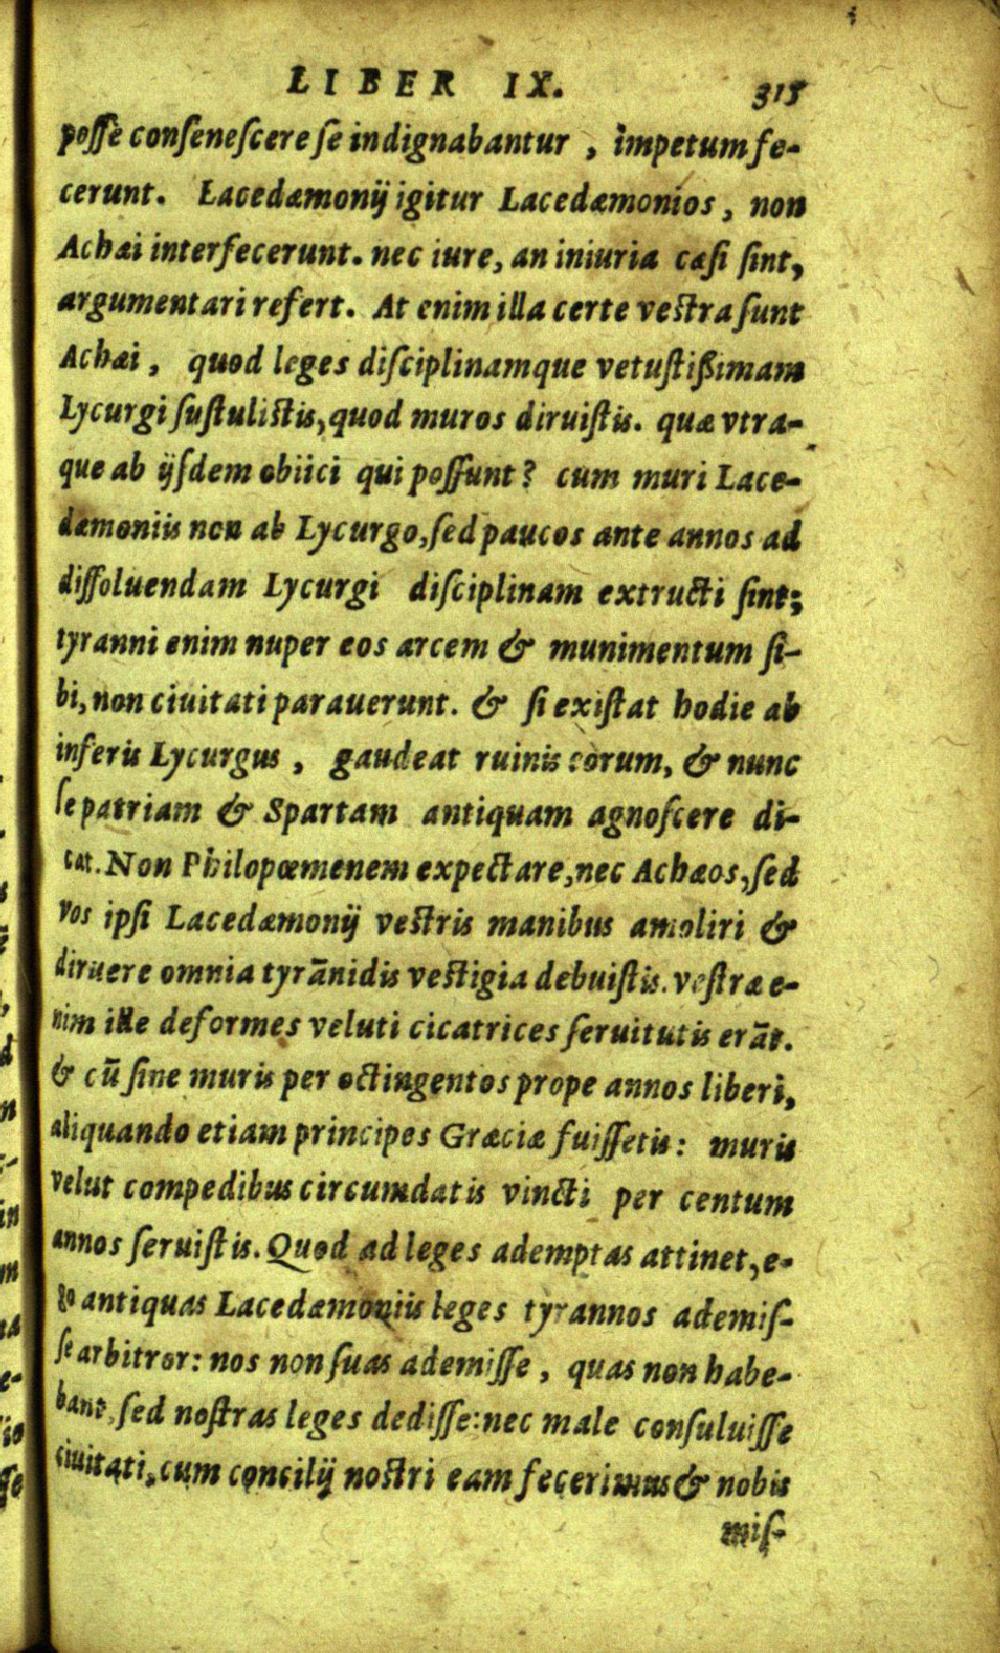 LIBER IX. 315
posse consenescere se indignabantur , impetum fe-
cerunt. Lacedæmonij igitur Lacedæmonios, non
Achæi interfecerunt. nec iure, an iniuria cæsi sint,
argumentari refert. At enim illa certe vestra sunt
Achæi, quod leges disciplinamque vetustißimam
Lycurgi sustulistis, quod muros diruistis. quæ vtra-
que ab ijsdem obiici qui possunt? cum muri Lace-
dæmoniis non ab Lycurgo, sed paucos ante annos ad
dissoluendam Lycurgi disciplinam extructi sint;
tyranni enim nuper eos arcem & munimentum si-
bi, non ciuitati parauerunt. & si existat hodie ab
inferis Lycurgus , gaudeat ruinis eorum, & nunc
se patriam & Spartam antiquam agnoscere di-
cat. Non Philopœmenem expectare, nec Achæos, sed
vos ipsi Lacedæmonij vestris manibus amoliri &
diruere omnia tyrānidis vestigia debuistis. vestræ e-
nim ille deformes veluti cicatrices seruitutis erāt.
& cū sine muris per octingentos prope annos liberi,
aliquando etiam principes Græciæ fuissetis: muris
velut compedibus circumdatis vincti per centum
annos seruistis. Quod ad leges ademptas attinet, e-
go antiquas Lacedæmoniis leges tyrannos ademis-
se arbitror: nos non suas ademisse , quas non habe-
bant, sed nostras leges dedisse: nec male consuluisse
ciuitati, cum concilij nostri eam fecerimus & nobis
mis-